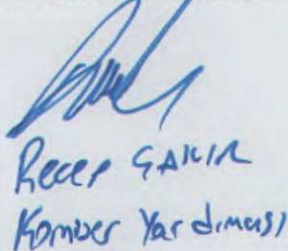 Recep ÇAKIR
Komiser Yardımcısı